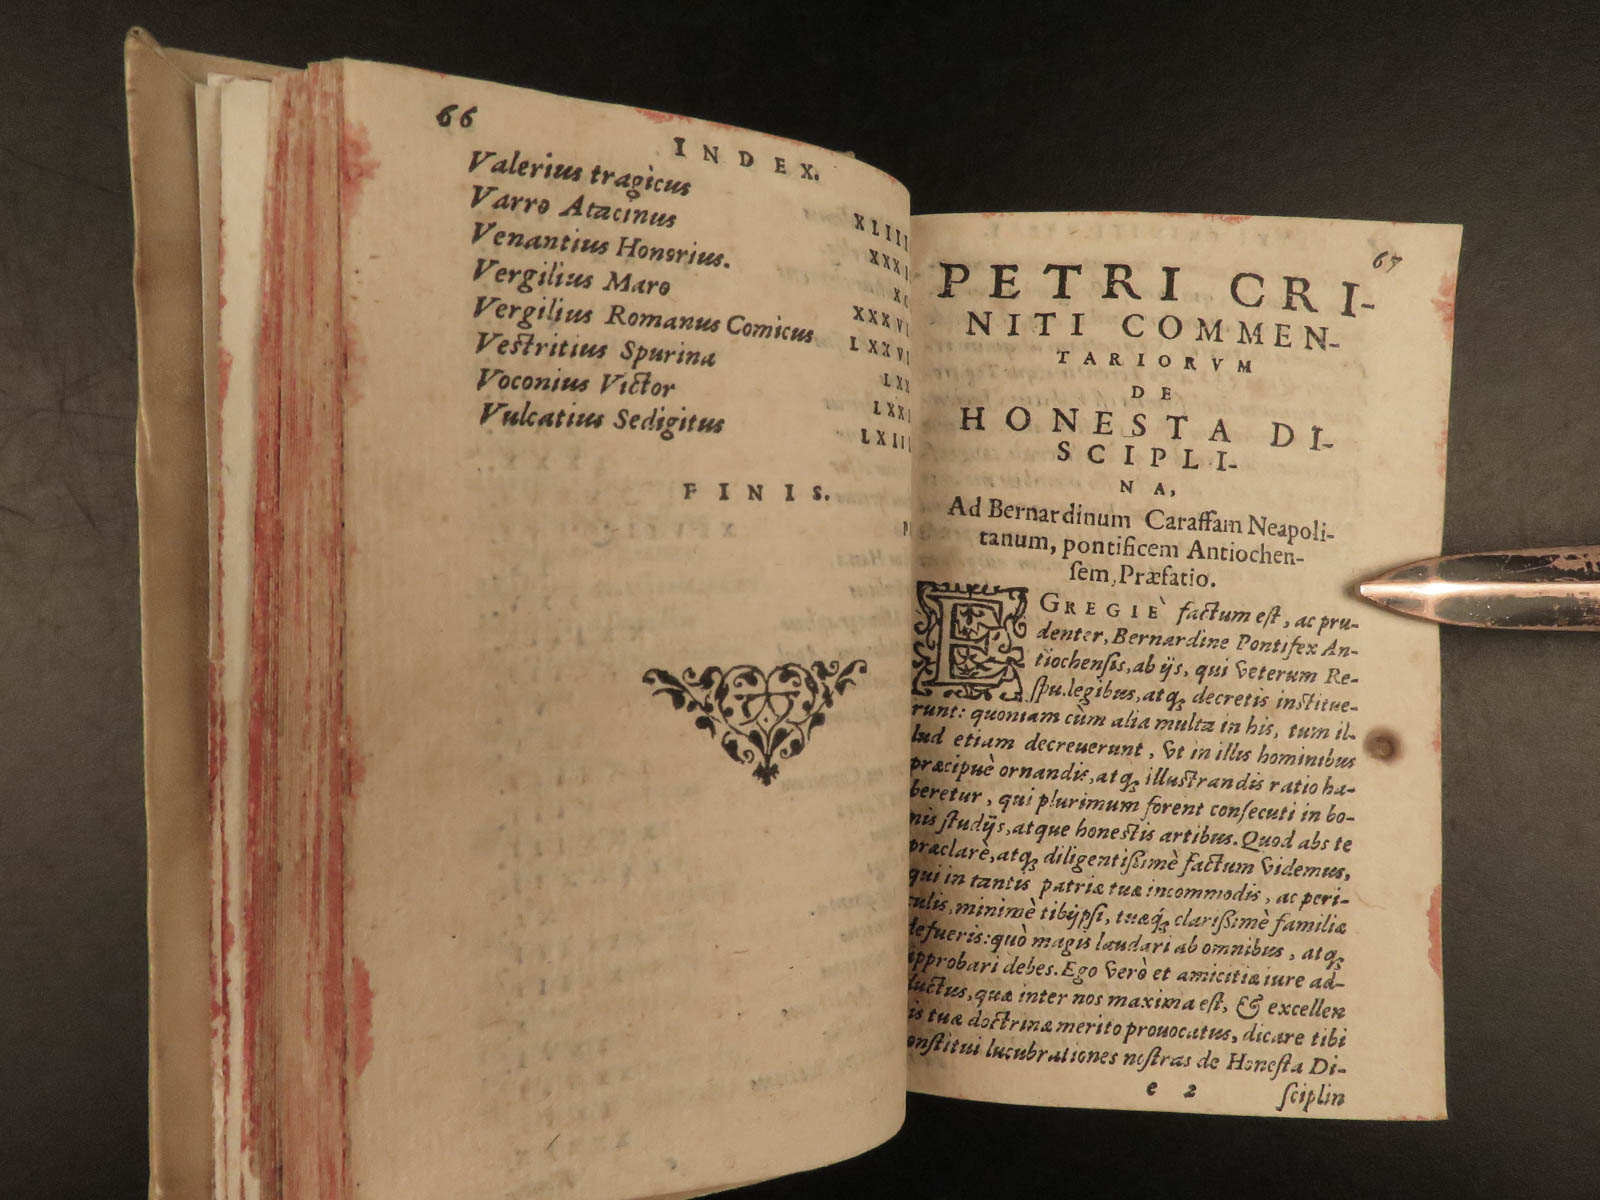 66
INDEX.
Valerius tragicus XLIII
Varro Atacinus XXXI
Venantius Honorius. XC
Vergilius Maro XXXVI
Vergilius Romanus Comicus LXXVI
Vestritius Spurina LXX
Voconius Victor LXXI
Vulcatius Sedigitus LXIII
FINIS.
67
PETRI CRI-
NITI COMMEN-
TARIORVM
DE
HONESTA DI-
SCIPLI-
NA,
Ad Bernardinum Caraffam Neapoli-
tanum, pontificem Antiochen-
ſem, Præfatio.
EGREGIE` factum eſt, ac pru-
denter, Bernardine Pontifex An-
tiochenſis, ab ijs, qui veterum Re-
ſpu. legibus, atq; decretis inſtitue-
runt: quoniam cùm alia multa in his, tum il-
lud etiam decreuerunt, vt in illis hominibus
præcipuè ornandis, atq; illuſtrandis ratio ha-
beretur, qui plurimum forent conſecuti in bo-
nis ſtudijs, atque honeſtis artibus. Quod abs te
præclarè, atq; diligentiſsimè factum videmus,
qui in tantis patriæ tuæ incommodis, ac peri-
culis, minimè tibijpſi, tuæq́; clariſsimè familiæ
defueris: quò magis laudari ab omnibus, atq;
approbari debes. Ego verò et amicitiæ iure ad-
ductus, quæ inter nos maxima eſt, & excellen
is tuæ doctrinæ merito prouocatus, dicare tibi
onſtitui lucubrationes noſtras de Honeſta Di-
e 2 ſciplin